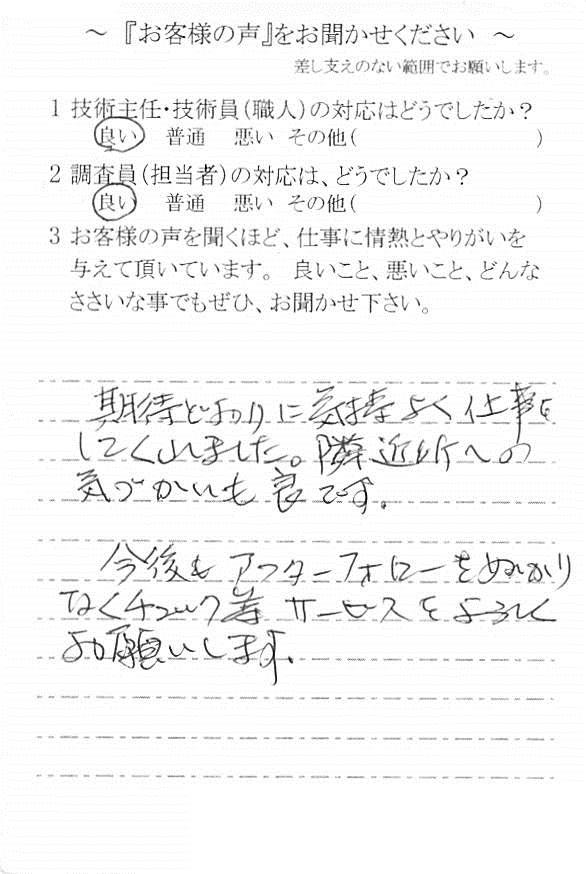 ～『お客様の声』をお聞かせください ～
差し支えのない範囲でお願いします。
1 技術主任・技術員(職人)の対応はどうでしたか？
良い 普通 悪い その他( )
2 調査員(担当者)の対応は、どうでしたか？
良い 普通 悪い その他( )
3 お客様の声を聞くほど、仕事に情熱とやりがいを
与えて頂いています。 良いこと、悪いこと、どんな
ささいな事でもぜひ、お聞かせ下さい。
期待どおりに気持よく仕事を
してくれました。隣近所への
気づかいも良です。
今後もアフターフォローをぬかり
なくチェック等サービスをよろしく
お願いします。